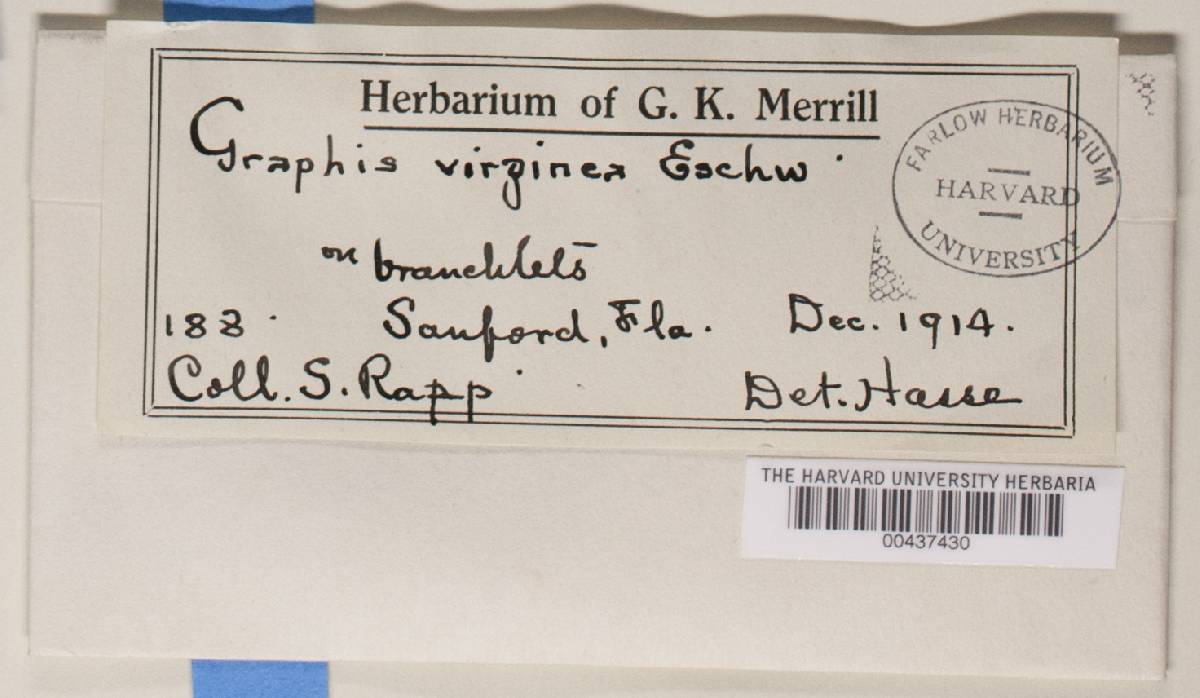 Herbarium of G. K. Merrill
Graphis virginea Eschw.
on branchlets
183. Sanford, Fla. Dec. 1914.
Coll. S. Rapp. Det. Hasse
FARLOW HERBARIUM
HARVARD
UNIVERSITY
THE HARVARD UNIVERSITY HERBARIA
00437430